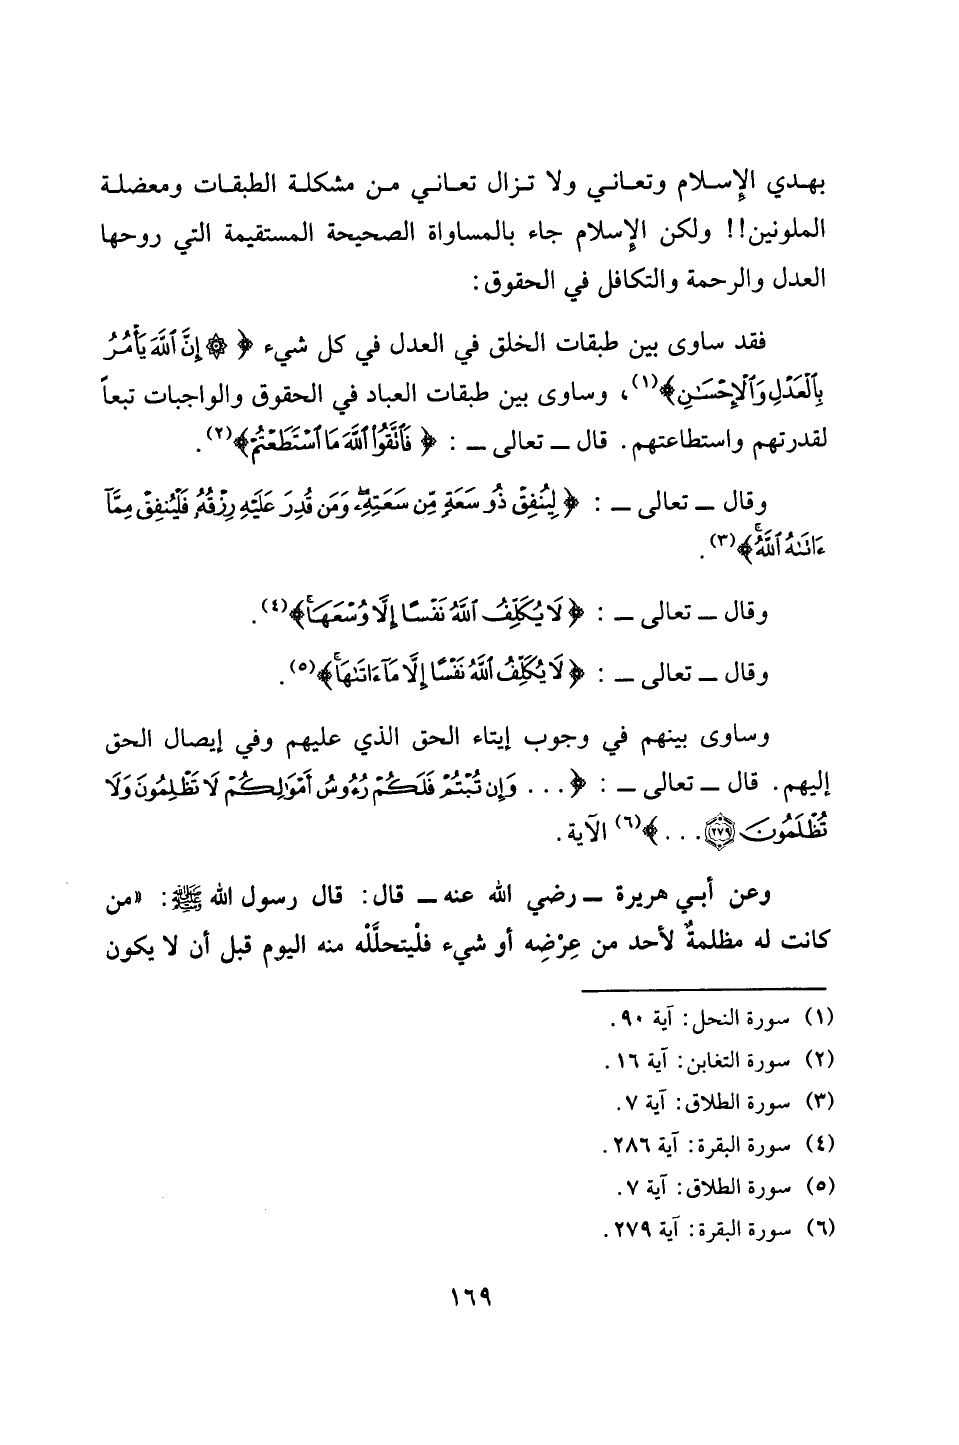 بهدي الإسلام وتعاني ولا تزال تعاني من مشكلة الطبقات ومعضلة
الملونين!! ولكن الإسلام جاء بالمساواة الصحيحة المستقيمة التي روحها
العدل والرحمة والتكافل في الحقوق:
فقد ساوى بين طبقات الخلق في العدل في كل شيء ﴿ ۞ إِنَّ ٱللَّهَ يَأْمُرُ
بِٱلْعَدْلِ وَٱلْإِحْسَـٰنِ﴾(١)، وساوى بين طبقات العباد في الحقوق والواجبات تبعاً
لقدرتهم واستطاعتهم. قال ــ تعالى ــ : ﴿ فَٱتَّقُوا۟ ٱللَّهَ مَا ٱسْتَطَعْتُمْ﴾(٢).
وقال ــ تعالى ــ : ﴿ لِيُنفِقْ ذُو سَعَةٍ مِّن سَعَتِهِۦۖ وَمَن قُدِرَ عَلَيْهِ رِزْقُهُۥ فَلْيُنفِقْ مِمَّآ
ءَاتَىٰهُ ٱللَّهُۚ﴾(٣).
وقال ــ تعالى ــ : ﴿ لَا يُكَلِّفُ ٱللَّهُ نَفْسًا إِلَّا وُسْعَهَاۚ﴾(٤).
وقال ــ تعالى ــ : ﴿ لَا يُكَلِّفُ ٱللَّهُ نَفْسًا إِلَّا مَآ ءَاتَىٰهَاۚ﴾(٥).
وساوى بينهم في وجوب إيتاء الحق الذي عليهم وفي إيصال الحق
إليهم. قال ــ تعالى ــ : ﴿... وَإِن تُبْتُمْ فَلَكُمْ رُءُوسُ أَمْوَٰلِكُمْ لَا تَظْلِمُونَ وَلَا
تُظْلَمُونَ ۝٢٧٩ ...﴾(٦) الآية.
وعن أبي هريرة ــ رضي الله عنه ــ قال: قال رسول الله ﷺ: «من
كانت له مظلمةٌ لأحد من عِرْضِه أو شيء فلْيتحلَّلْه منه اليوم قبل أن لا يكون
(١) سورة النحل: آية ٩٠.
(٢) سورة التغابن: آية ١٦.
(٣) سورة الطلاق: آية ٧.
(٤) سورة البقرة: آية ٢٨٦.
(٥) سورة الطلاق: آية ٧.
(٦) سورة البقرة: آية ٢٧٩.
١٦٩